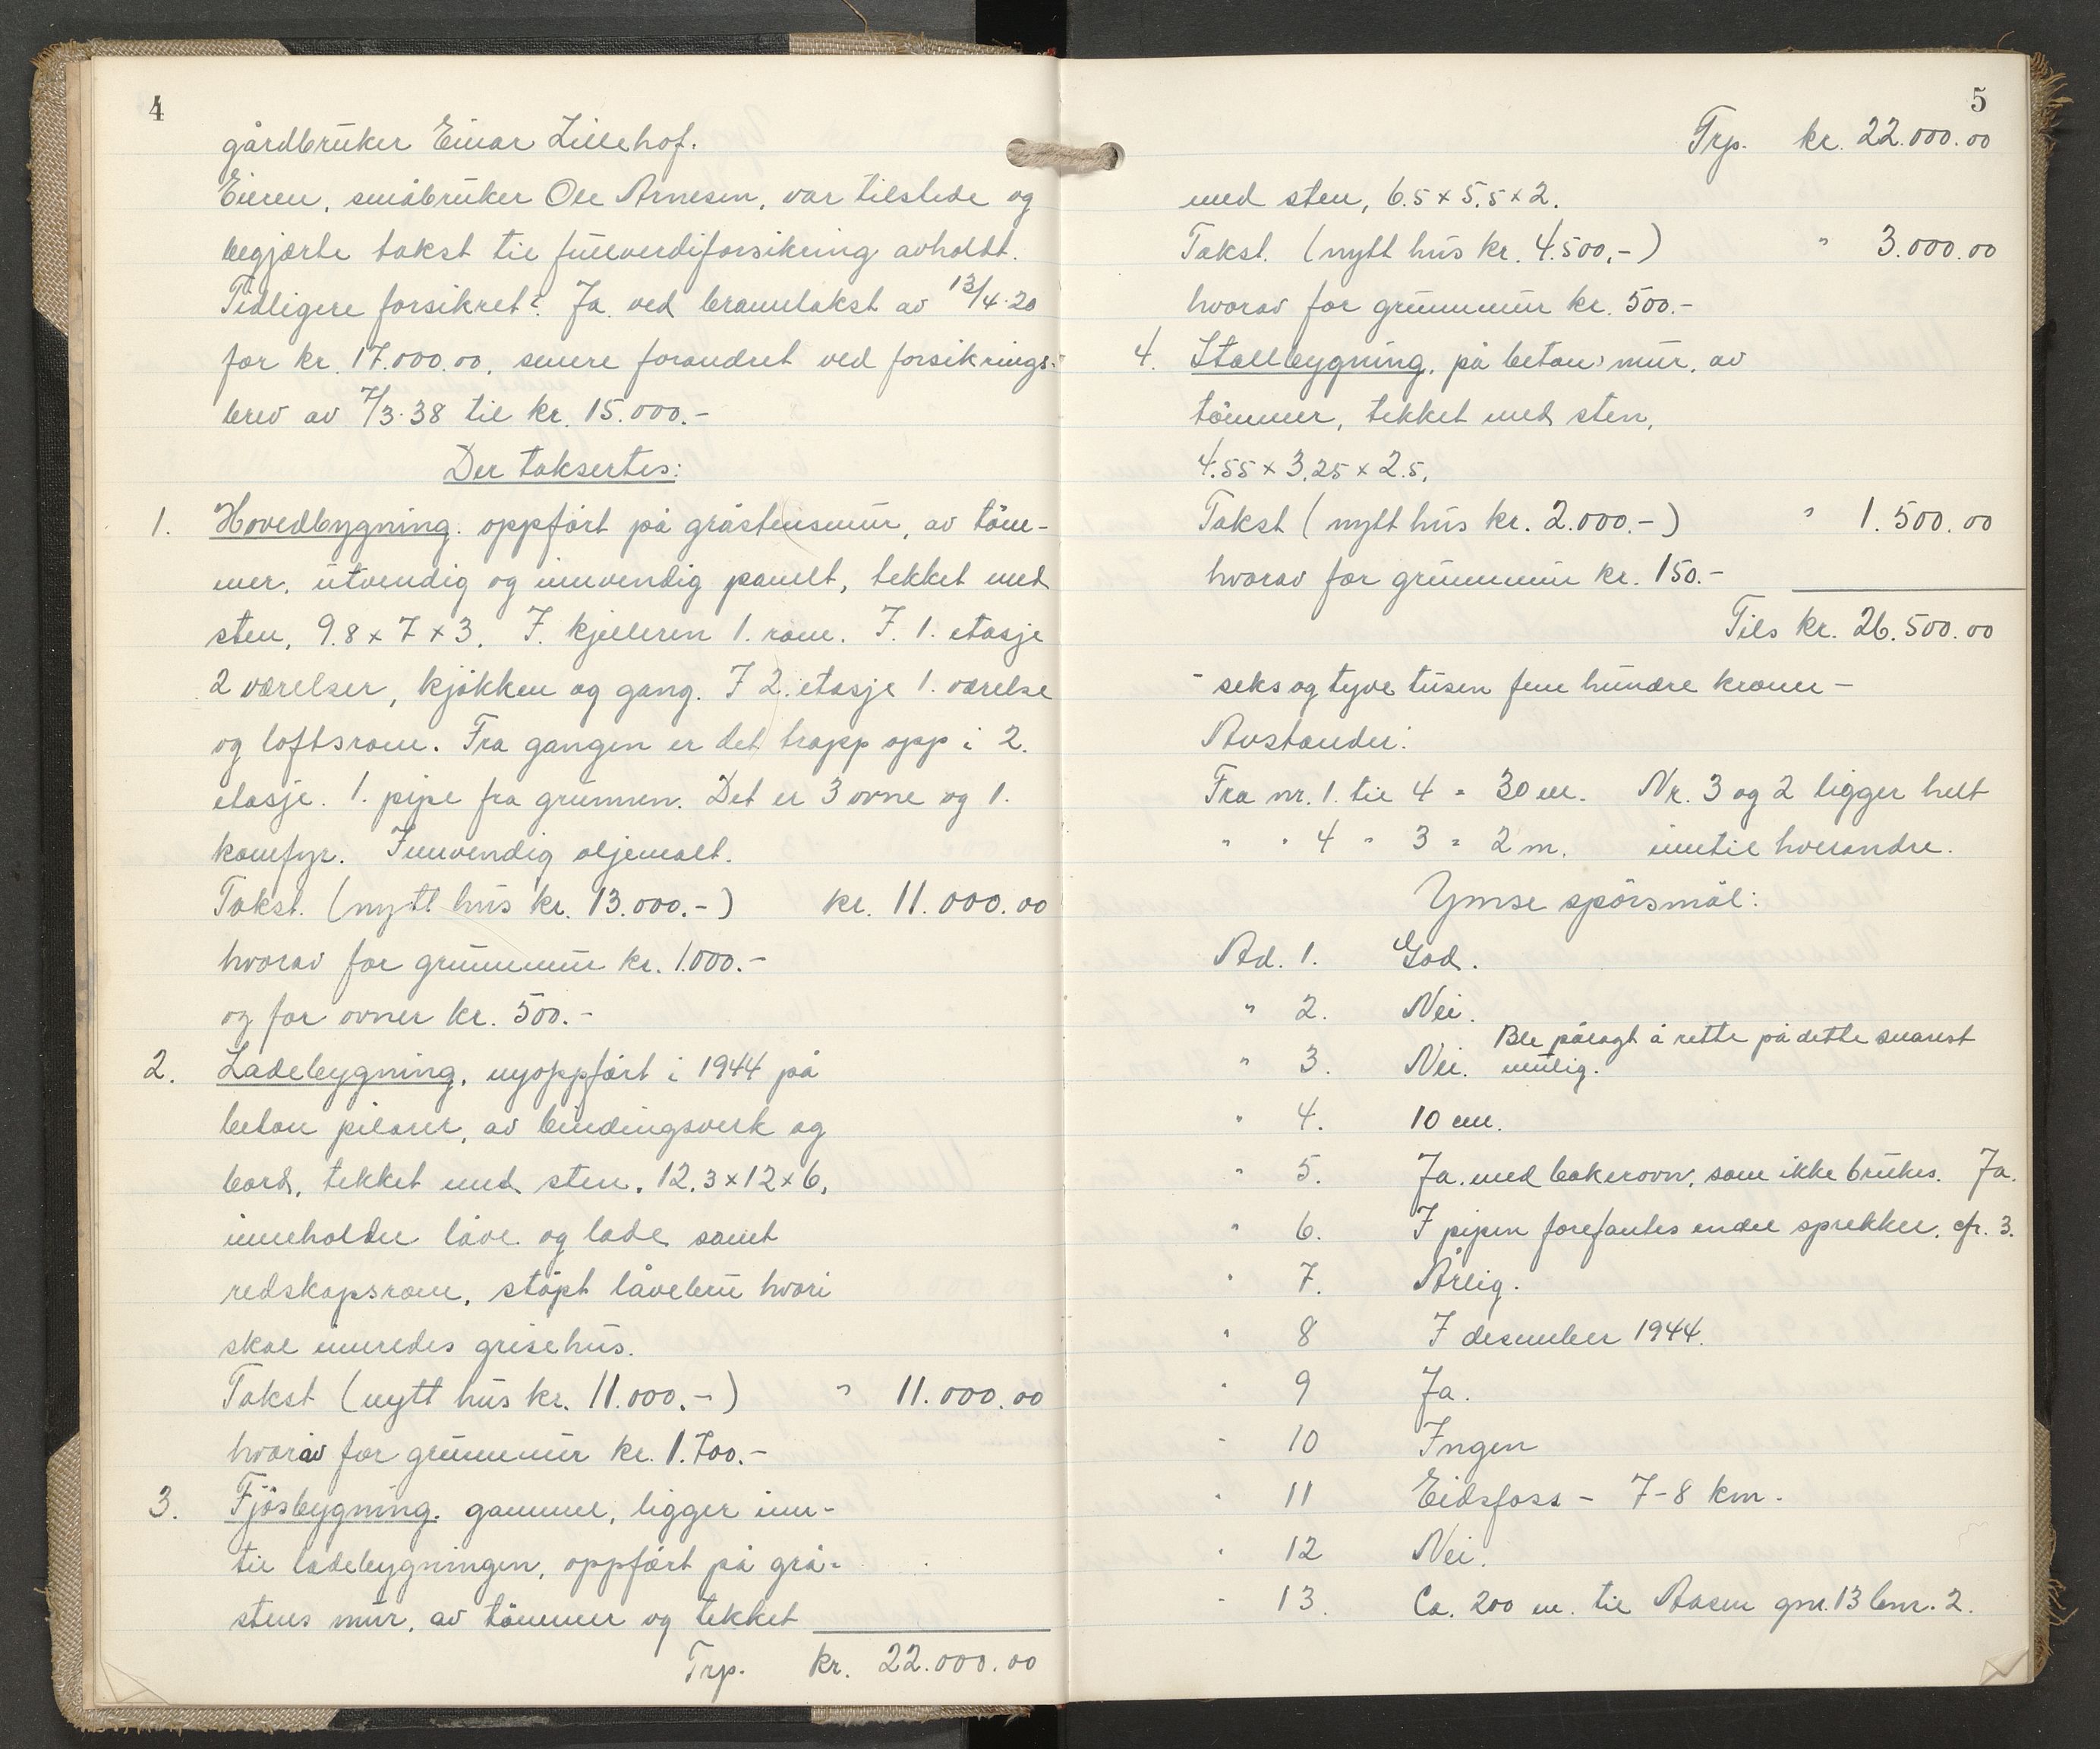 4
gårdbruker Einar Lillehof.
Eieren, småbruker Ole Arnesen, var tilstede og
begjærte takst til fullverdiforsikring avholdt.
Tidligere forsikret? Ja. ved branntakst av 13/4-20
for kr. 17.000.00, senere forandret ved forsikrings-
brev av 7/3-38 til kr. 15.000.-
Der taksertes:
1. Hovedbygning. oppført på gråstensmur, av töm-
mer, utvendig og innvendig panelt, tekket med
sten, 9.8 x 7 x 3. I. kjelleren 1. rom. I. 1. etasje
2 værelser, kjökken og gang. I 2. etasje 1. værelse
og loftsrom. Fra gangen er det trapp opp i 2.
etasje. 1. pipe fra grunnen. Det er 3 ovne og 1.
komfyr. Innvendig oljemalt.
Takst. (nytt hus kr. 13.000.-) kr. 11.000.00
hvorav for grunnmur kr. 1.000.-
og for ovner kr. 500.-
2. Ladebygning, nyoppført i 1944 på
beton pilarer, av bindingsverk og
bord, tekket med sten. 12.3 x 12 x 6,
inneholder låve og lade samt
redskapsrom, stöpt låvebru hvori
skal innredes grisehus.
Takst (nytt hus kr. 11.000.-) " 11.000.00
hvorav for grunnmur kr. 1.700.-
3. Fjösbygning. gammel, ligger inn-
til ladebygningen, oppført på grå-
stens mur, av tömmer og tekket
Trp. kr. 22.000.00
5
Trp. kr. 22.000.00
med sten, 6.5 x 5.5 x 2.
Takst. (nytt hus kr. 4.500,-) " 3.000.00
hvorav for grunnmur kr. 500.-
4. Stallbygning, på beton mur, av
tömmer, tekket med sten,
4.55 x 3.25 x 2.5,
Takst (nytt hus kr. 2.000.-) " 1.500.00
hvorav for grunnmur kr. 150.-
Tils kr. 26.500.00
- seks og tyve tusen fem hundre kroner -
Avstander:
Fra nr. 1. til 4 = 30 m. Nr. 3 og 2 ligger helt
" " 4 " 3 = 2 m. inntil hverandre.
Ymse spörsmål:
Ad. 1. God.
" 2. Nei.
" 3. Nei. Ble pålagt å rette på dette snarest
mulig.
" 4. 10 cm.
" 5. Ja. med bakerovn, som ikke brukes. Ja.
" 6. I pipen forefantes endel sprekker. cfr. 3.
" 7. Årlig.
" 8 I desember 1944.
" 9 Ja.
" 10 Ingen
" 11 Eidsfoss - 7-8 km.
" 12 Nei.
" 13. Ca. 200 m. til Aasen gnr. 13 bnr. 2.